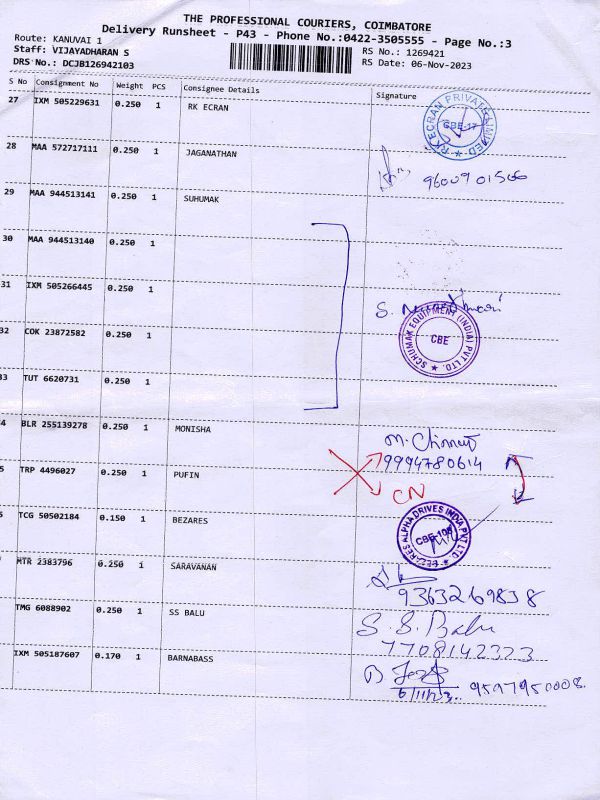 THE PROFESSIONAL COURIERS, COIMBATORE
Delivery Runsheet - P43 - Phone No.:0422-3505555 - Page No.:3
Route: KANUVAI 1
RS No.: 1269421
Staff: VIJAYADHARAN S
RS Date: 06-Nov-2023
DRS No.: DCJB126942103
S No Consignment No Weight PCS Consignee Details Signature
27 IXM 505229631 0.250 1 RK ECRAN
RK ECRAN PRIVATE LIMITED
CBE-17
28 MAA 572717111 0.250 1 JAGANATHAN
9600901566
29 MAA 944513141 0.250 1 SUHUMAK
30 MAA 944513140 0.250 1
31 IXM 505266445 0.250 1
S.
SCHUMAK EQUIPMENT (INDIA) PVT LTD.
CBE
32 COK 23872582 0.250 1
33 TUT 6620731 0.250 1
4 BLR 255139278 0.250 1 MONISHA
9994780614
5 TRP 4496027 0.250 1 PUFIN
CN
6 TCG 50502184 0.150 1 BEZARES
BEZARES ALPHA DRIVES INDIA PVT LTD
MTR 2383796 0.250 1 SARAVANAN
9363269838
TMG 6088902 0.250 1 SS BALU
S. S. Balu
7708142323
IXM 505187607 0.170 1 BARNABASS
6/11/23. 9597950008.